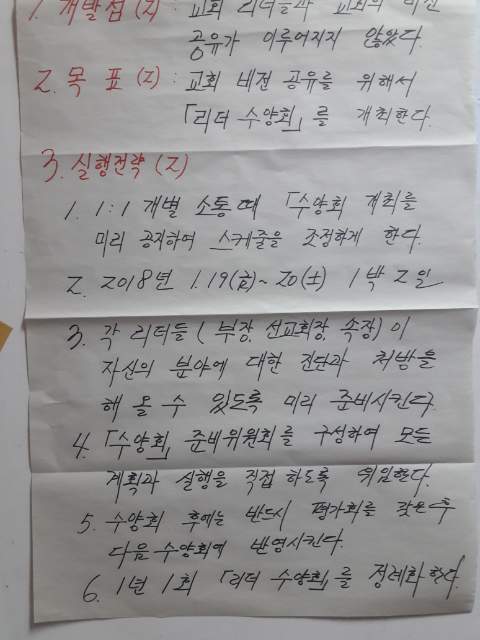 1. 개발점 (Z) : 교회 리더들과 교회의 비전
공유가 이루어지지 않았다.
Z. 목 표 (Z) : 교회 비전 공유를 위해서
「리더 수양회」를 개최한다.
3. 실행전략 (Z)
1. 1:1 개별 소통때 「수양회 개최를
미리 공지하여 스케줄을 조정하게 한다.
2. 2018년 1.19(금)~20(土) 1박 2일
3. 각 리더들 ( 부장, 선교회장, 속장) 이
자신의 분야에 대한 진단과 처방을
해 올 수 있도록 미리 준비시킨다.
4. 「수양회」 준비위원회를 구성하여 모든
계획과 실행을 직접 하도록 위임한다.
5. 수양회 후에는 반드시 평가회를 갖은 후
다음 수양회에 반영시킨다.
6. 1년 1회 「리더 수양회」를 정례화 한다.